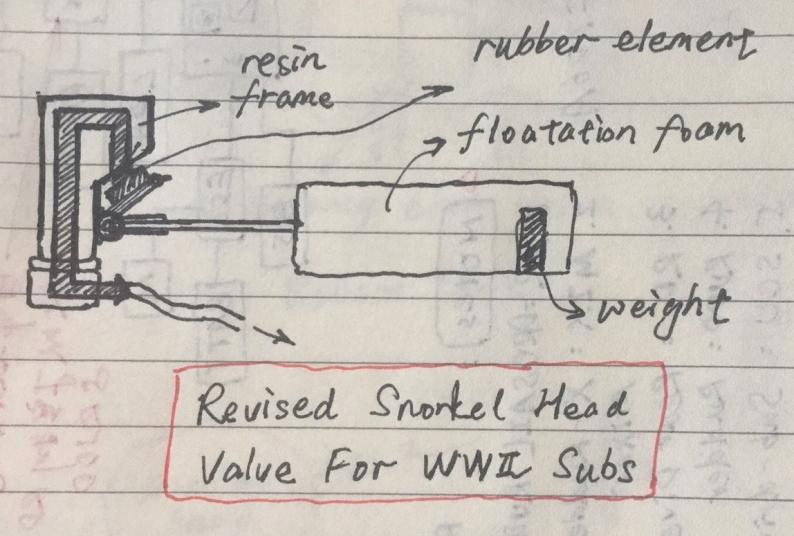 resin
frame
rubber element
floatation foam
weight
Revised Snorkel Head
Valve For WWII Subs